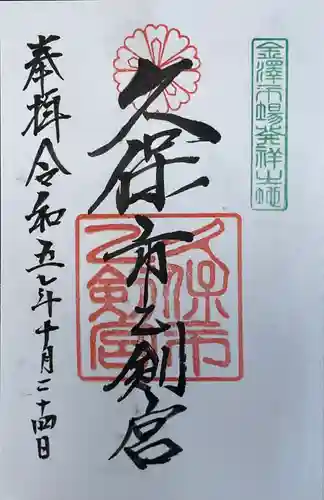 金澤市場発祥之地
久保市乙剣宮
久保市
乙剣宮
奉拝 令和五年十月二十四日